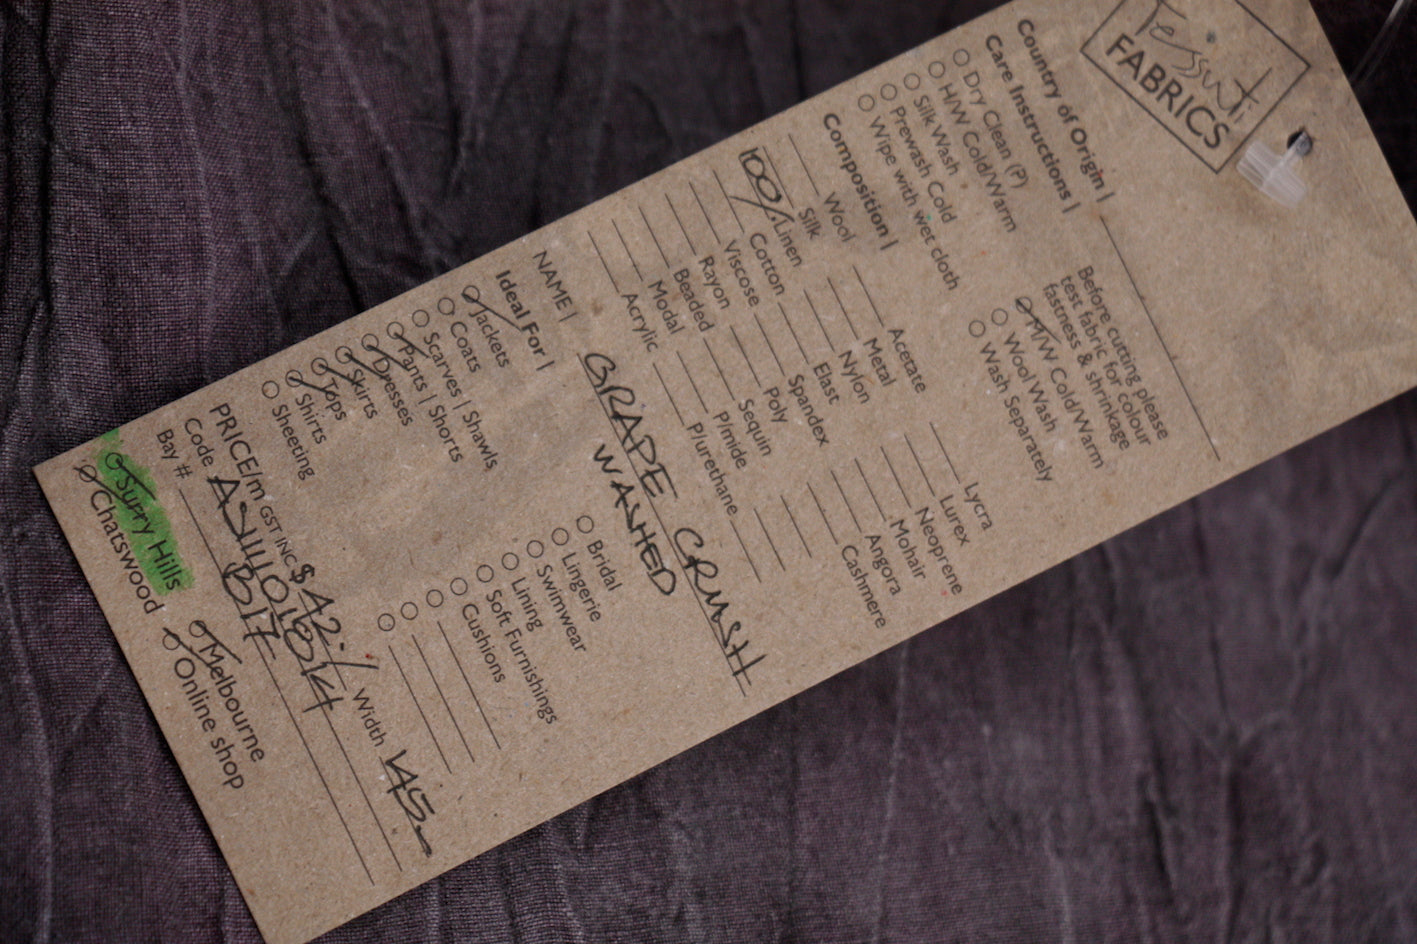 Tessuti
FABRICS
Country of Origin |
Care Instructions |
Dry Clean (P)
H/W Cold/Warm
Silk Wash
Prewash Cold
Wipe with wet cloth
Before cutting please
test fabric for colour
fastness & shrinkage
H/W Cold/Warm
Wool Wash
Wash Separately
Composition |
Wool
Silk
100/. Linen
Cotton
Viscose
Rayon
Beaded
Modal
Acrylic
Acetate
Metal
Nylon
Elast
Spandex
Poly
Sequin
P/mide
P/urethane
Lycra
Lurex
Neoprene
Mohair
Angora
Cashmere
NAME | GRAPE CRUSH
WASHED
Ideal For |
Jackets
Coats
Scarves | Shawls
Pants | Shorts
Dresses
Skirts
Tops
Shirts
Sheeting
Bridal
Lingerie
Swimwear
Lining
Soft Furnishings
Cushions
PRICE/m GST INC $42./ Width 145
Code
Bay # B17
Surry Hills
Melbourne
Chatswood
Online shop